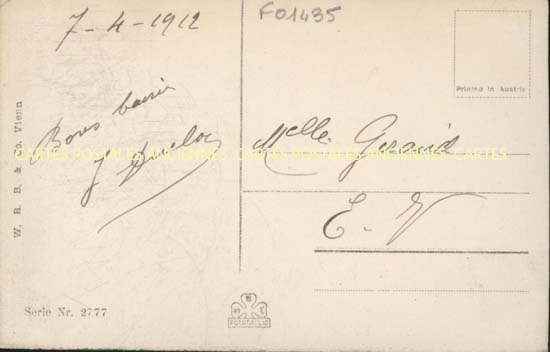 7-4-1912
F01435
Printed in Austria
Bons baisers
J
Melle Gerard
E. V
CARTES POSTALES ANCIENNES CARTES POSTALES ANCIENNES CARTES
W. R. B. & Co. Vienn
Serie Nr. 2777